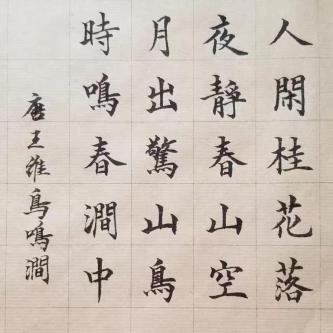 人閑桂花落
夜靜春山空
月出驚山鳥
時鳴春澗中
唐王維鳥鳴澗